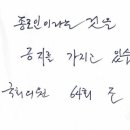 종로인이라는 것을
긍지를 가지고 있습
국회의원 64회 돈